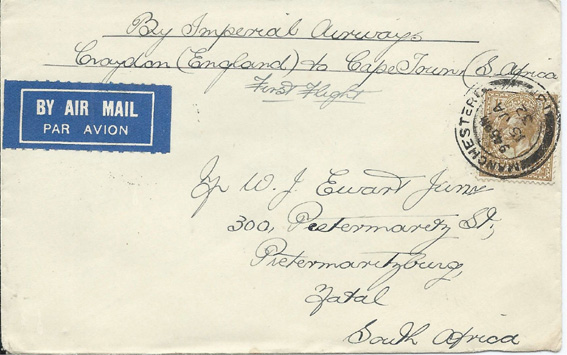 By Imperial Airways
Croydon (England) to Cape Town (S. Africa
First Flight
BY AIR MAIL
PAR AVION
MANCHESTER
W. J. Ewart Junr
300, Pietermaritz St,
Pietermaritzburg,
Natal
South Africa